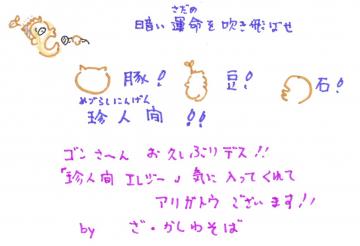 さだめ
暗い運命を吹き飛ばせ
豚! 豆! 石!
めずらしいにんげん
珍人間!!
ゴンさーん お久しぶりデス!!
「珍人間エレジー」気に入ってくれて
アリガトウございます!!
by ざ・かしわそば